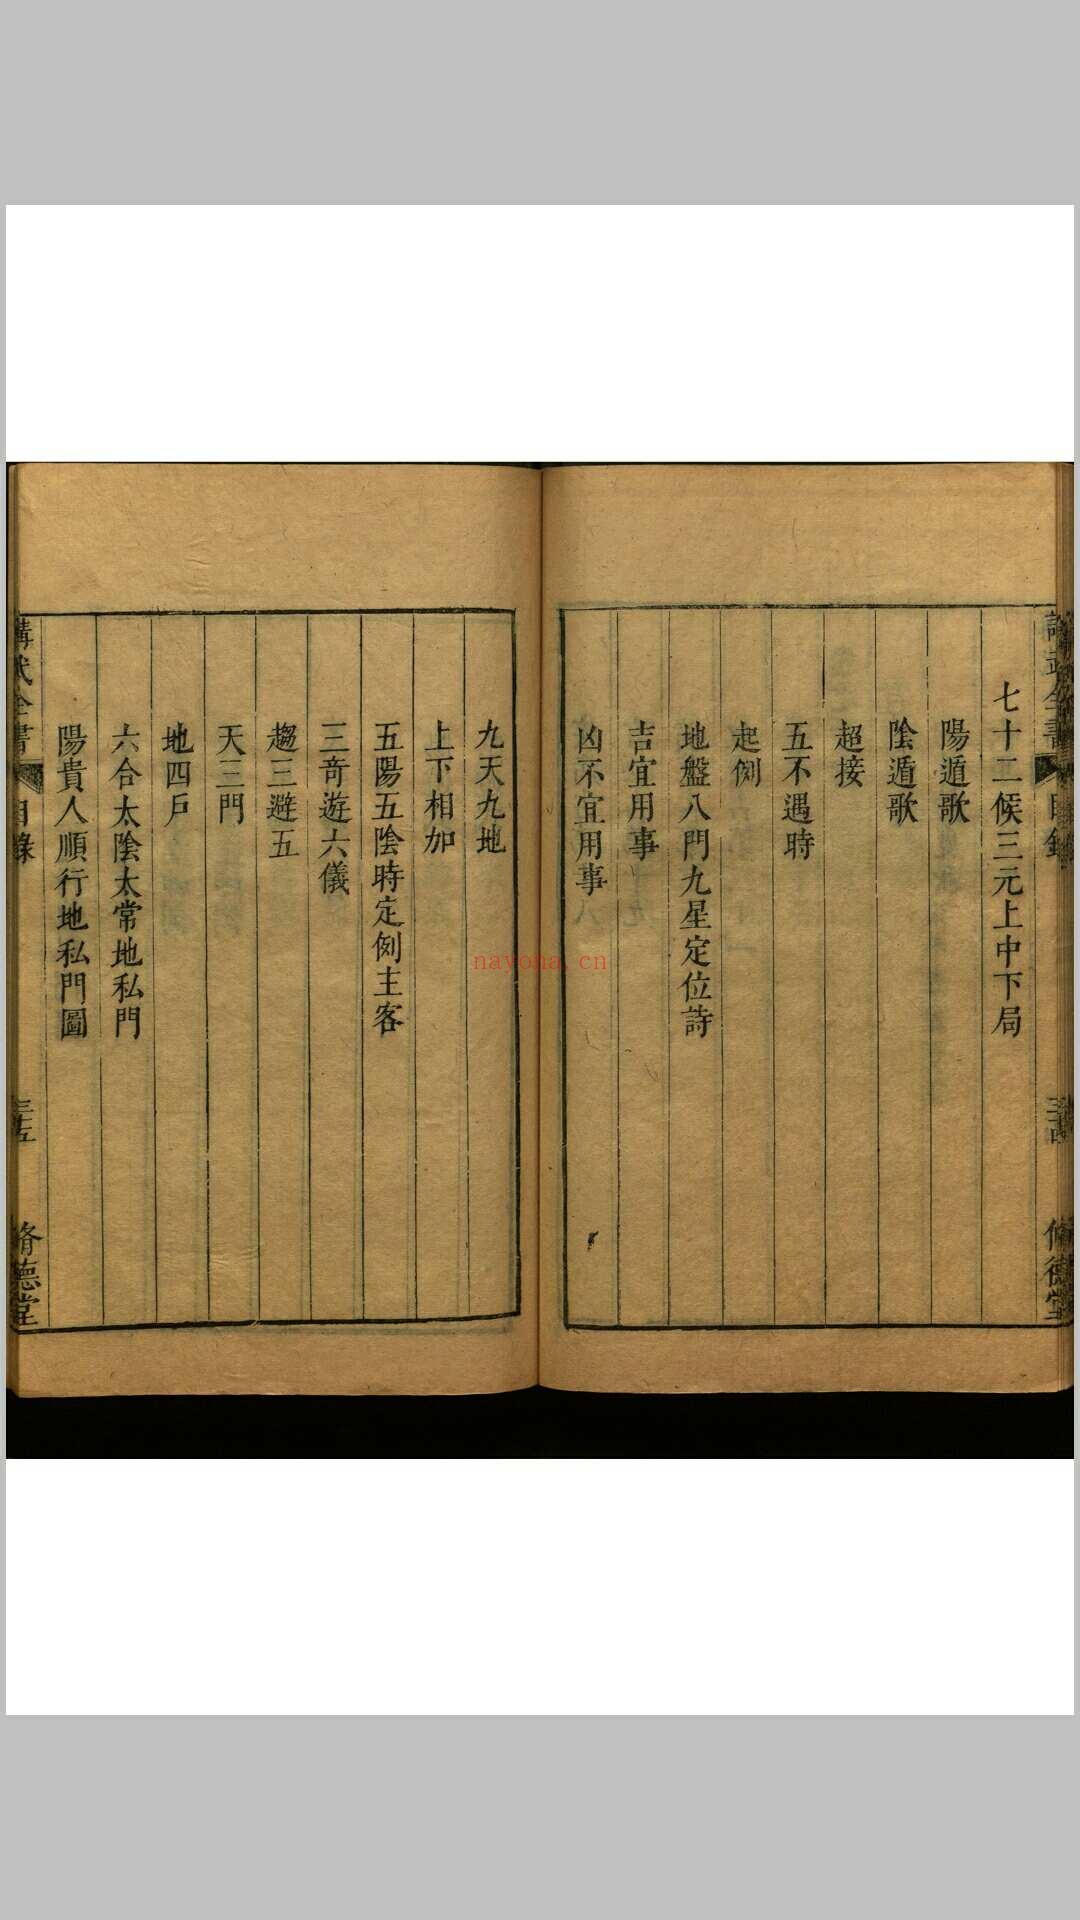 七十二候三元上中下局
陽遁歌
陰遁歌
超接
五不遇時
起例
地盤八門九星定位詩
吉宜用事
凶不宜用事
九天九地
上下相加
五陽五陰時定例主客
三奇遊六儀
趨三避五
天三門
地四戶
六合太陰太常地私門
陽貴人順行地私門圖
講武全書 目錄 三五 脩德堂
nayona.cn